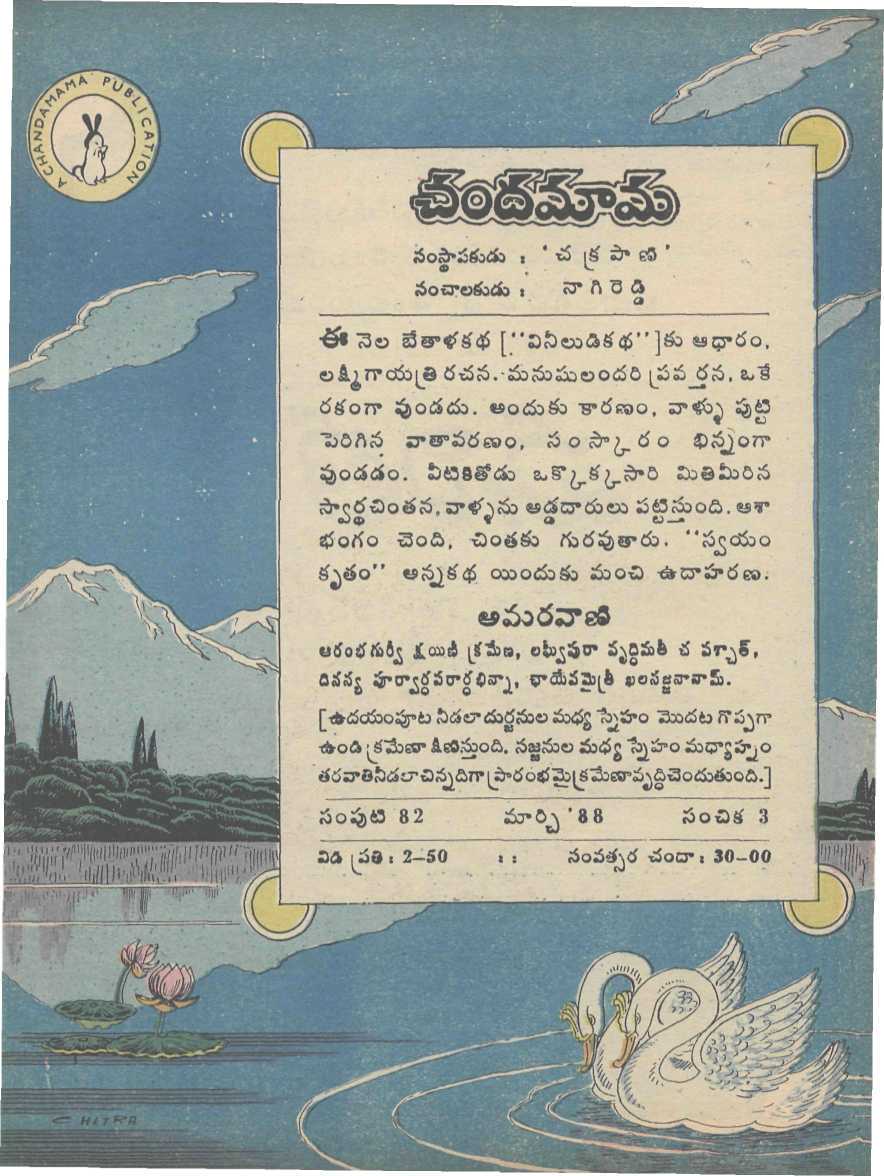 A CHANDAMAMA PUBLICATION
చందమామ
సంస్థాపకుడు : ' చ క్ర పా ణి '
సంచాలకుడు : నా గి రె డ్డి
ఈ నెల బేతాళకథ [''వినీలుడికథ'']కు ఆధారం,
లక్ష్మీగాయత్రి రచన. మనుషులందరి ప్రవర్తన, ఒకే
రకంగా వుండదు. అందుకు కారణం, వాళ్ళు పుట్టి
పెరిగిన వాతావరణం, సం స్కా రం భిన్నంగా
వుండడం. వీటికితోడు ఒక్కొక్కసారి మితిమీరిన
స్వార్థచింతన, వాళ్ళను అడ్డదారులు పట్టిస్తుంది. ఆశా
భంగం చెంది, చింతకు గురవుతారు. ''స్వయం
కృతం'' అన్నకథ యిందుకు మంచి ఉదాహరణ.
అమరవాణి
ఆరంభగుర్వీ క్షయిణీ క్రమేణ, లఘ్వీపురా వృద్ధిమతీ చ పశ్చాత్,
దినస్య పూర్వార్ధపరార్ధభిన్నా, ఛాయేవమైత్రీ ఖలసజ్జనానామ్.
[ఉదయంపూట నీడలా దుర్జనుల మధ్య స్నేహం మొదట గొప్పగా
ఉండి క్రమేణా క్షీణిస్తుంది. సజ్జనుల మధ్య స్నేహం మధ్యాహ్నం
తరవాతినీడలా చిన్నదిగా ప్రారంభమై క్రమేణా వృద్ధిచెందుతుంది.]
సంపుటి 82 మార్చి '88 సంచిక 3
విడి ప్రతి : 2-50 : : సంవత్సర చందా : 30-00
CHITRA